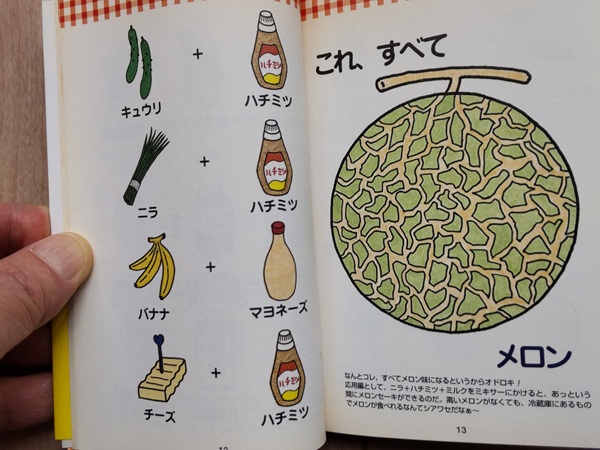 キュウリ
+
ハチミツ
ハチミツ
ニラ
+
ハチミツ
ハチミツ
バナナ
+
マヨネーズ
チーズ
+
ハチミツ
ハチミツ
これ、すべて
メロン
なんとコレ、すべてメロン味になるというからオドロキ！
応用編として、ニラ＋ハチミツ＋ミルクをミキサーにかけると、あっという
間にメロンセーキができるのだ。高いメロンがなくても、冷蔵庫にあるもの
でメロンが食べれるなんてシアワセだなぁ〜
13